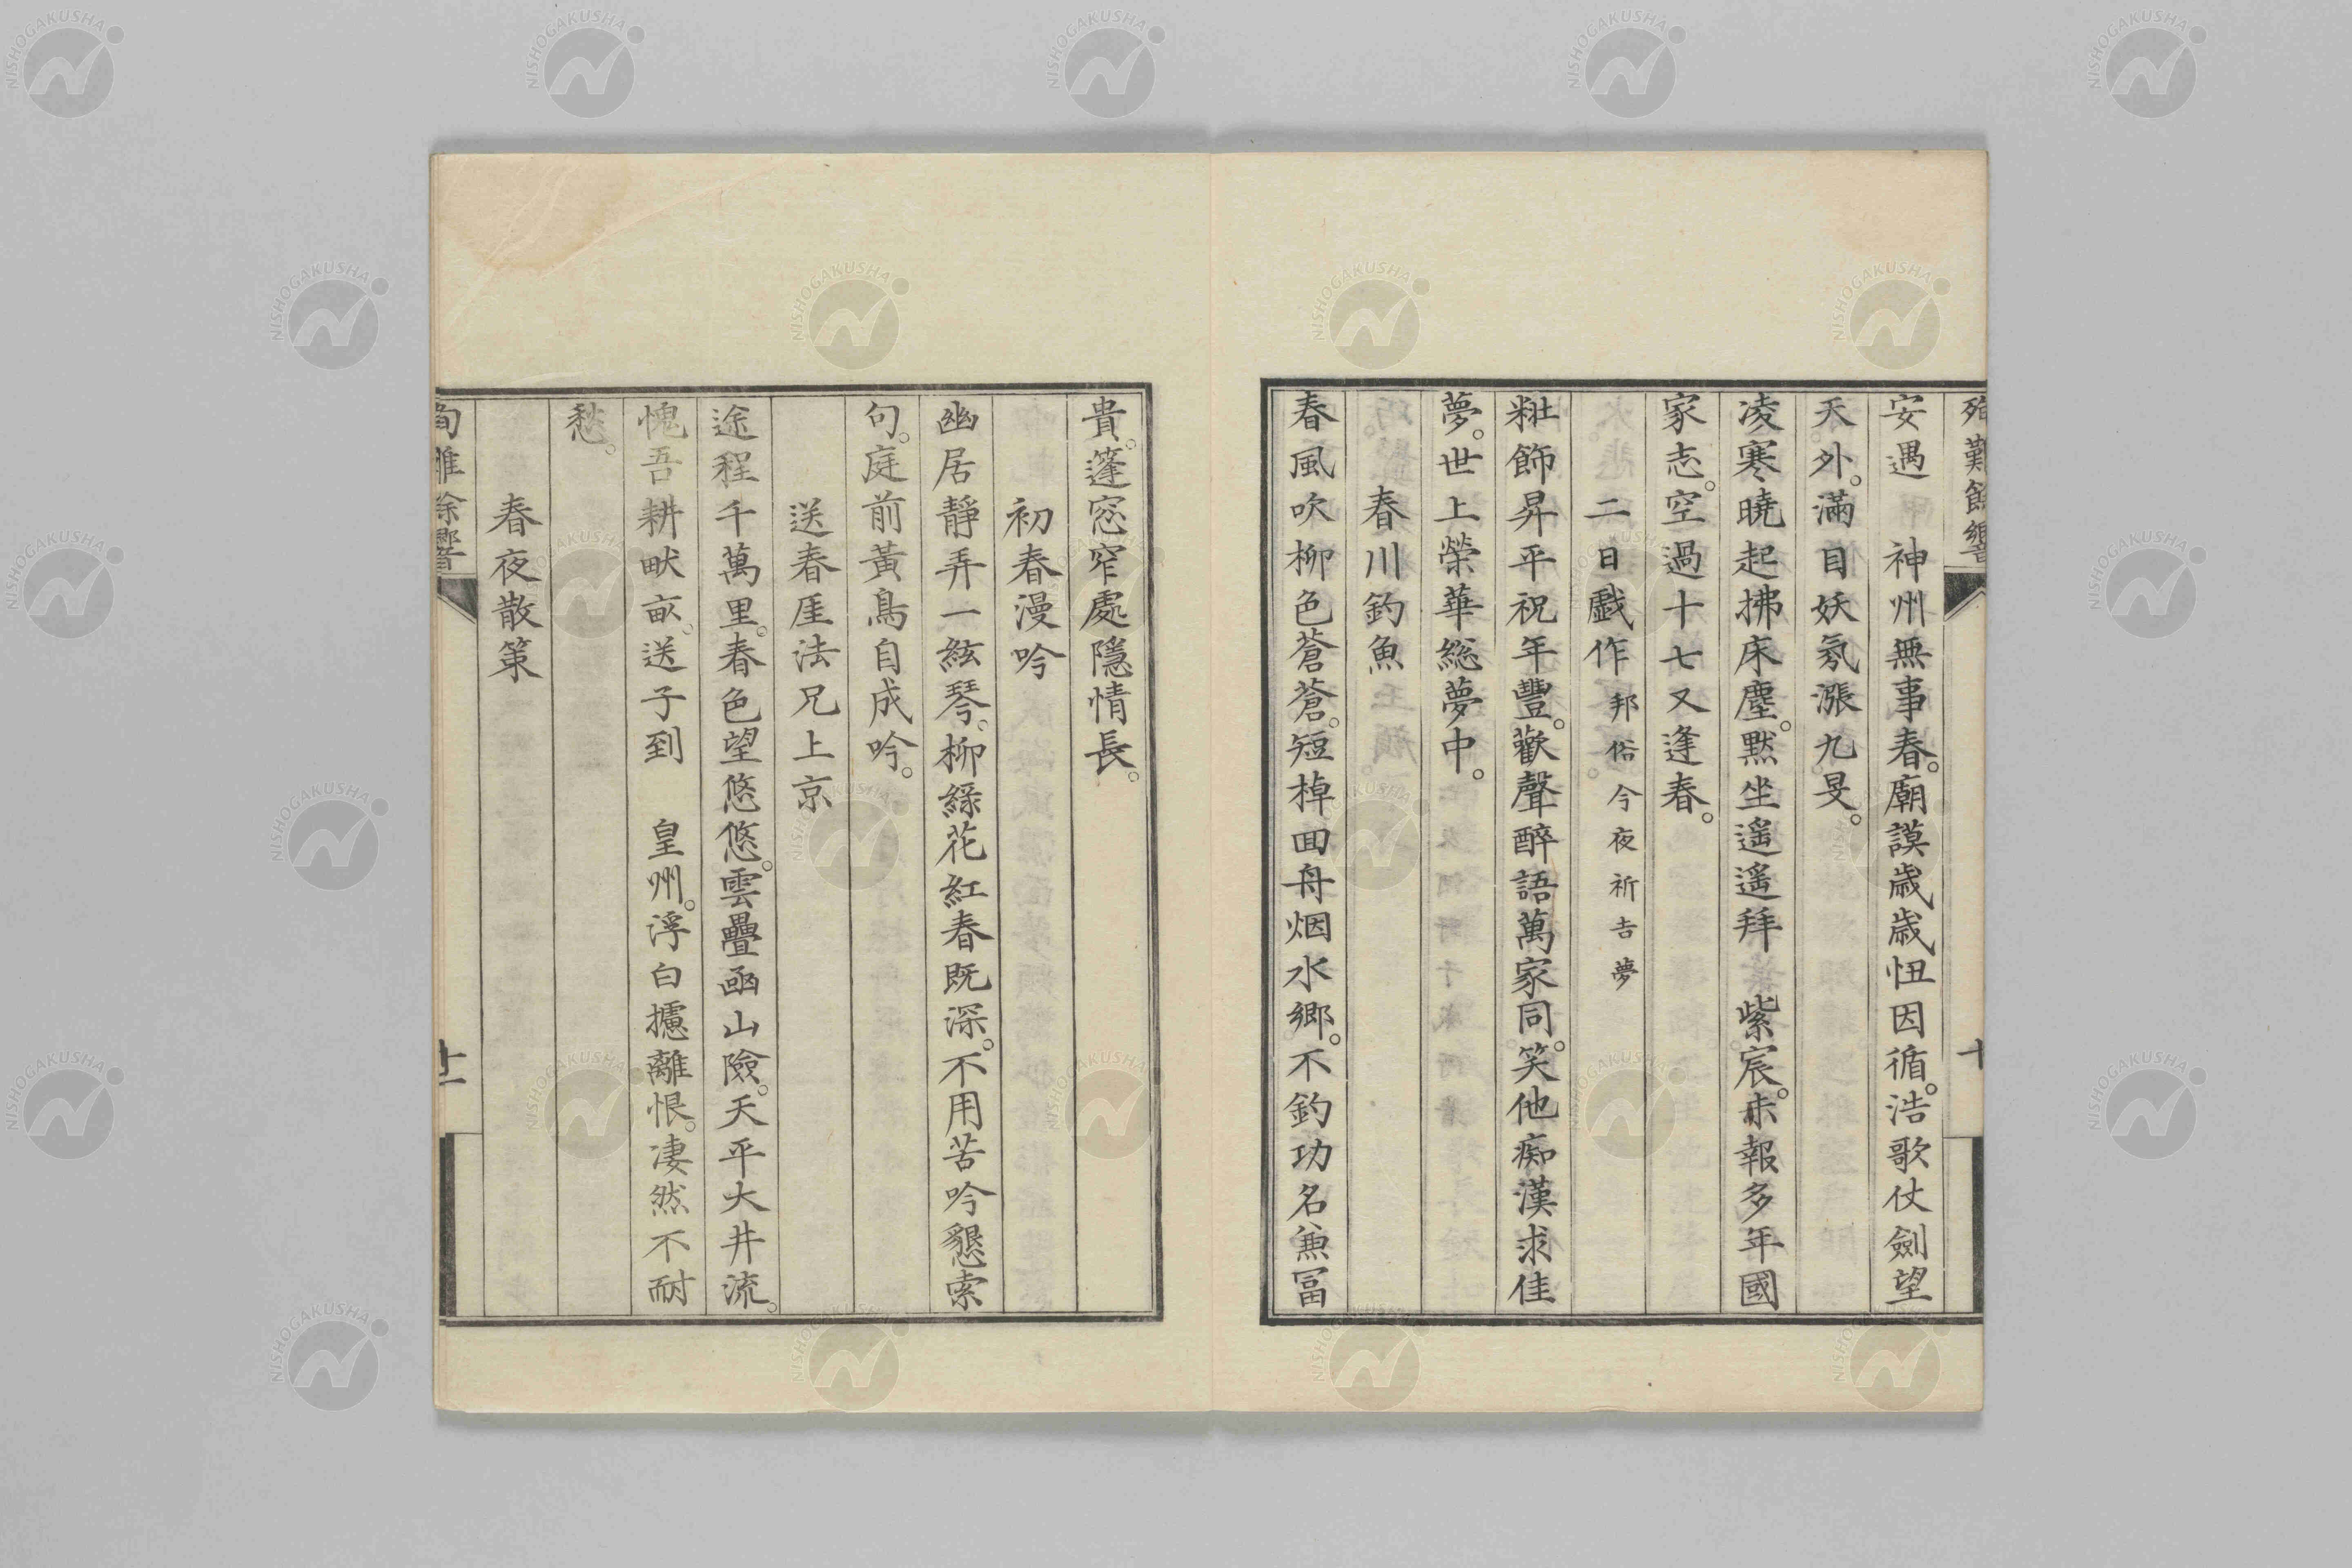 殉難餘響
十
安遇　神州無事春。廟謨歳歳忸因循。浩歌仗劍望
天外。滿目妖氛漲九旻。
凌寒曉起拂床塵。默坐遥遥拜　紫宸。未報多年國
家志。空過十七又逢春。
二日戲作邦俗今夜祈吉夢
粧飾昇平祝年豐。歡聲醉語萬家同。笑他痴漢求佳
夢。世上榮華総夢中。
春川釣魚
春風吹柳色蒼蒼。短棹囬舟烟水郷。不釣功名兼冨
貴。篷窓窄處隱情長。
初春漫吟
幽居靜弄一絃琴。柳緑花紅春既深。不用苦吟懇索
句。庭前黃鳥自成吟。
送春厓法兄上京
途程千萬里。春色望悠悠。雲疊函山險。天平大井流。
愧吾耕畎畝。送子到　皇州。浮白攄離恨。凄然不耐
愁。
春夜散策
殉難餘響
十一
NISHOGAKUSHA